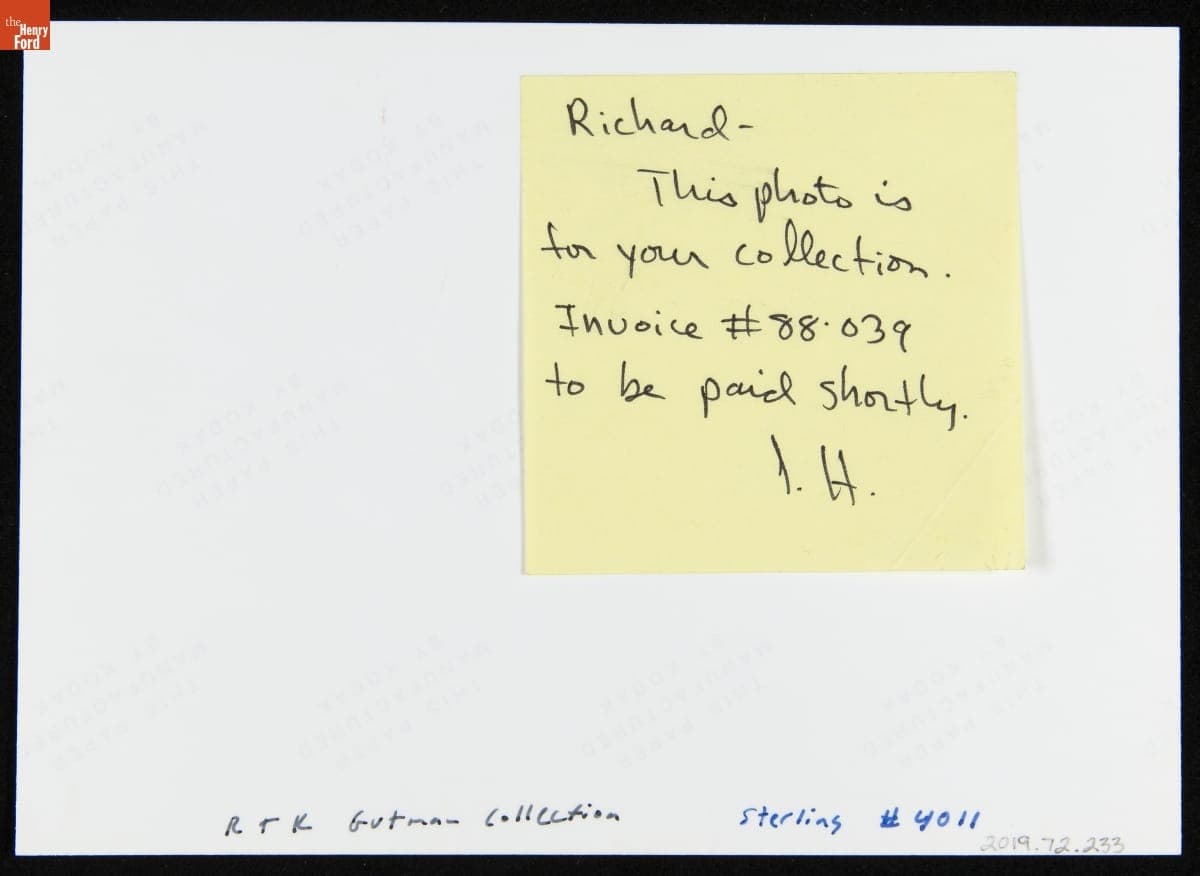 the
Henry
Ford
Richard-
This photo is
for your collection.
Invoice #88.039
to be paid shortly.
J. H.
THIS PAPER
MANUFACTURED
BY KODAK
R + K Gutman Collection
Sterling # 4011
2019.72.233